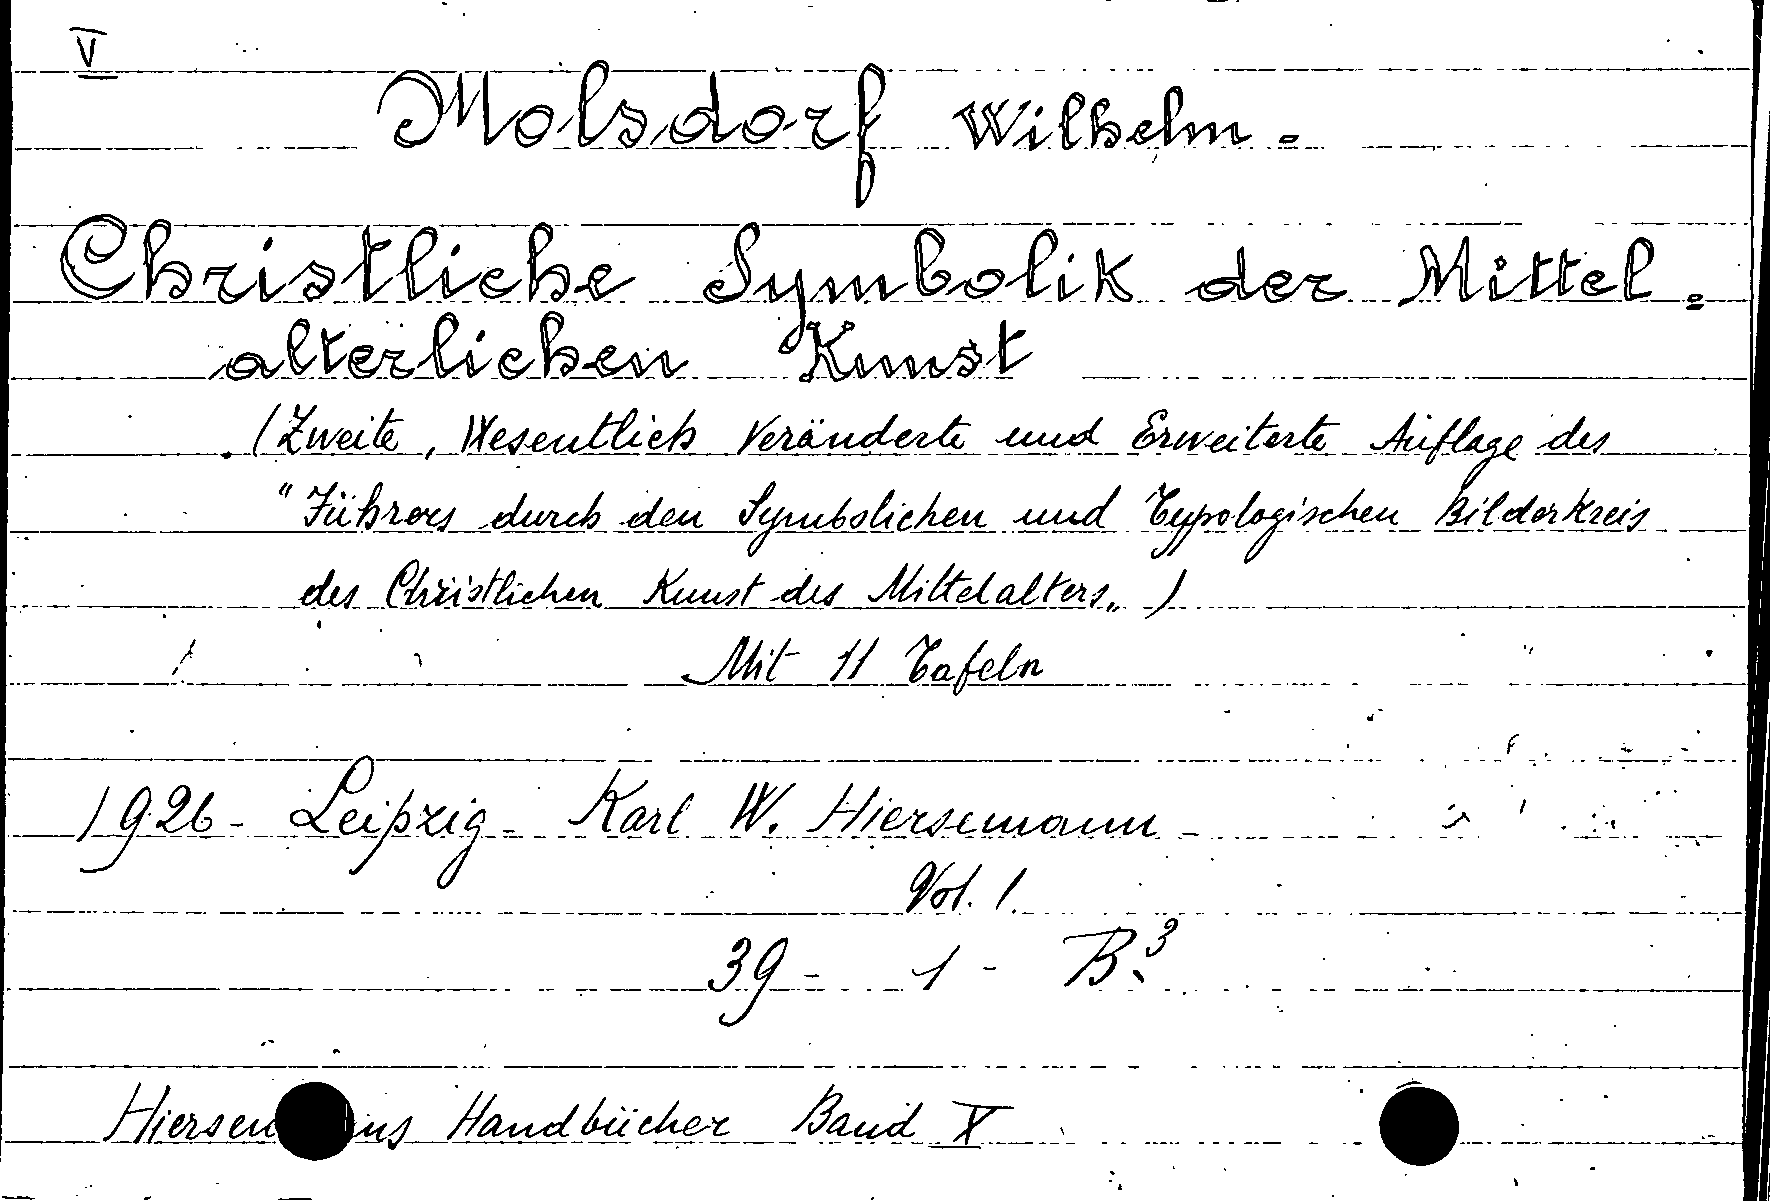 V
Molsdorf Wilhelm.
Christliche Symbolik der Mittel=
alterlichen Kunst
(Zweite, Wesentlich Veränderte und Erweiterte Auflage des
"Führers durch den Symbolichen und Typologischen Bilderkreis
des Christlichen Kunst des Mittelalters„)
Mit 11 Tafeln
1926 - Leipzig - Karl W. Hiersemann -
Vol. 1.
39 - 1 - B.3
Handbücher Band X